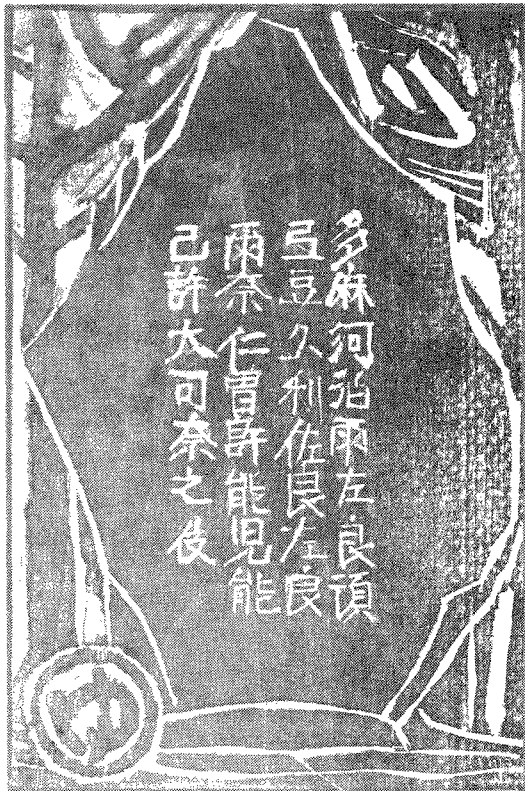 多麻河泊爾左良須
弖豆久利佐良左良
爾奈仁曽許能児能
己許太可奈之伎